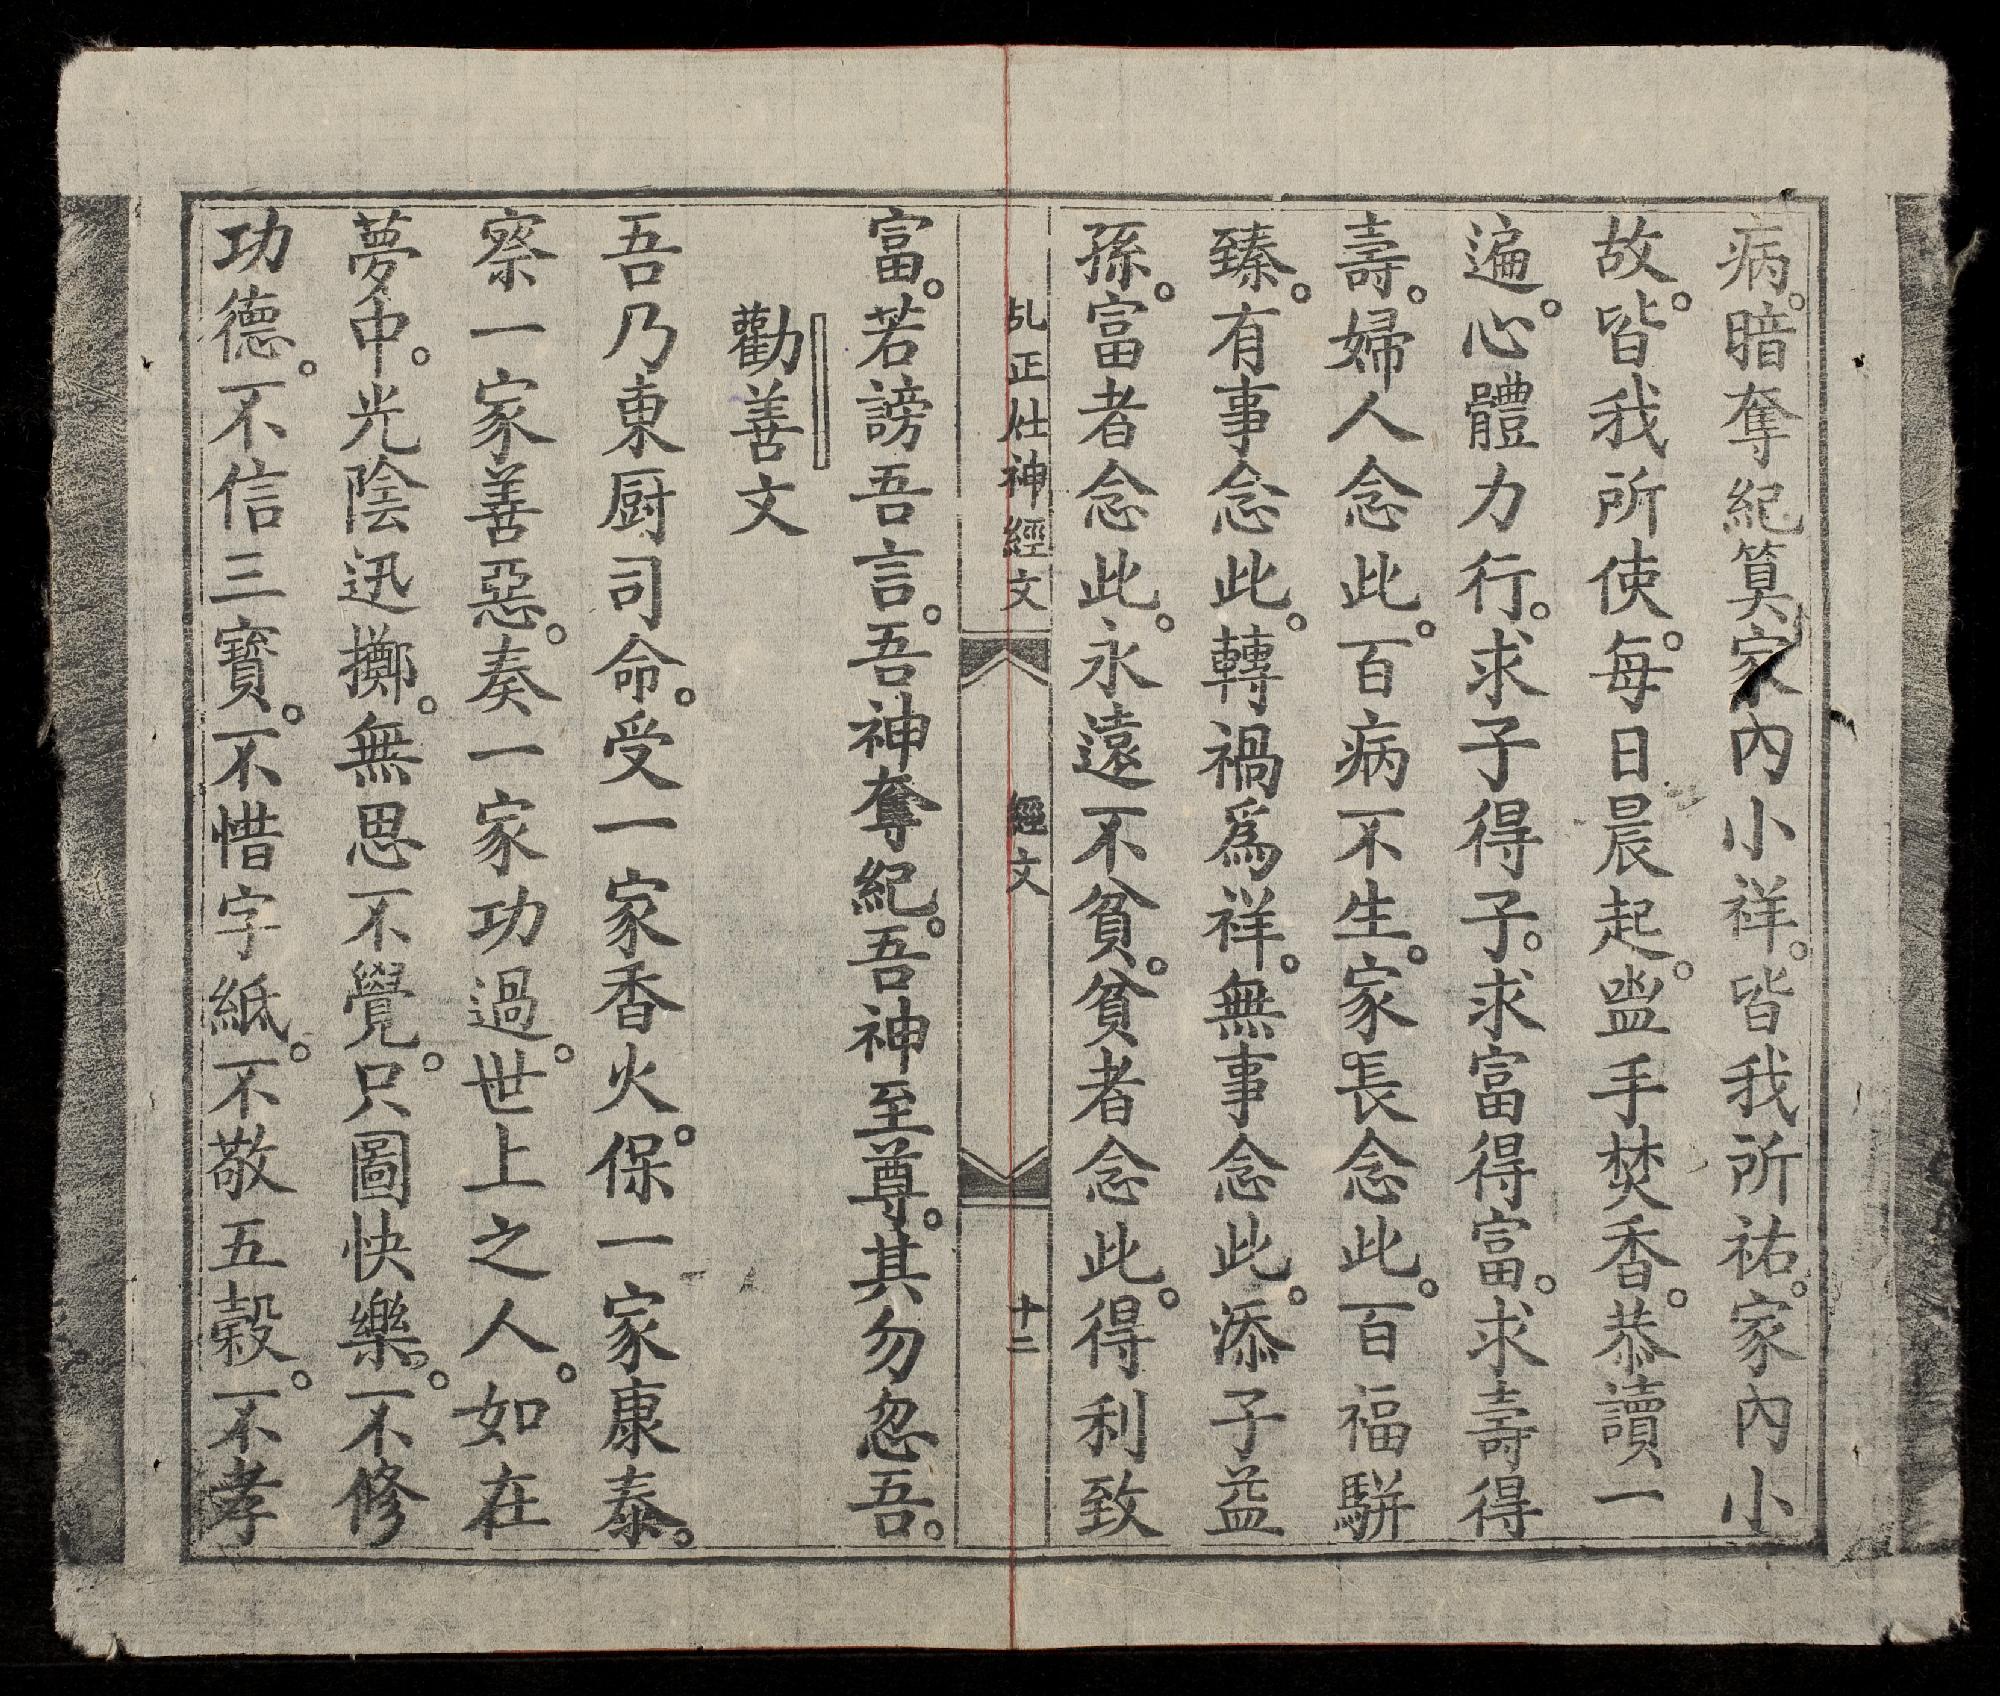 病。暗奪紀算家內小祥。皆我所祐。家內小
故。皆我所使。每日晨起。盥手焚香。恭讀一
遍。心體力行。求子得子。求富得富。求壽得
壽。婦人念此。百病不生。家長念此。百福駢
臻。有事念此。轉禍為祥。無事念此。添子益
孫。富者念此。永遠不貧。貧者念此。得利致
乩正灶神經文 經文 十二
富。若謗吾言。吾神奪紀。吾神至尊。其勿忽吾。
勸善文
吾乃東厨司命。受一家香火。保一家康泰。
察一家善惡。奏一家功過。世上之人。如在
夢中。光陰迅擲。無思不覺。只圖快樂。不修
功德。不信三寶。不惜字紙。不敬五穀。不孝